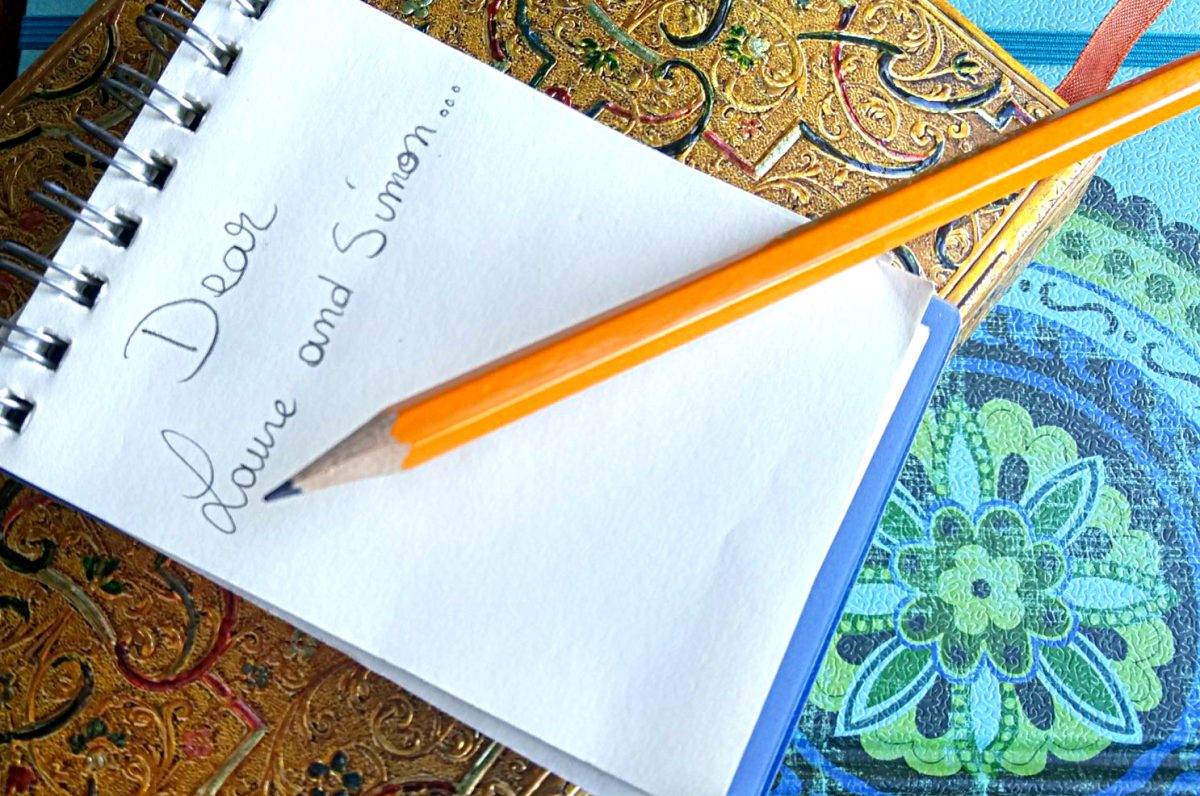 Dear
Laure and Simon...